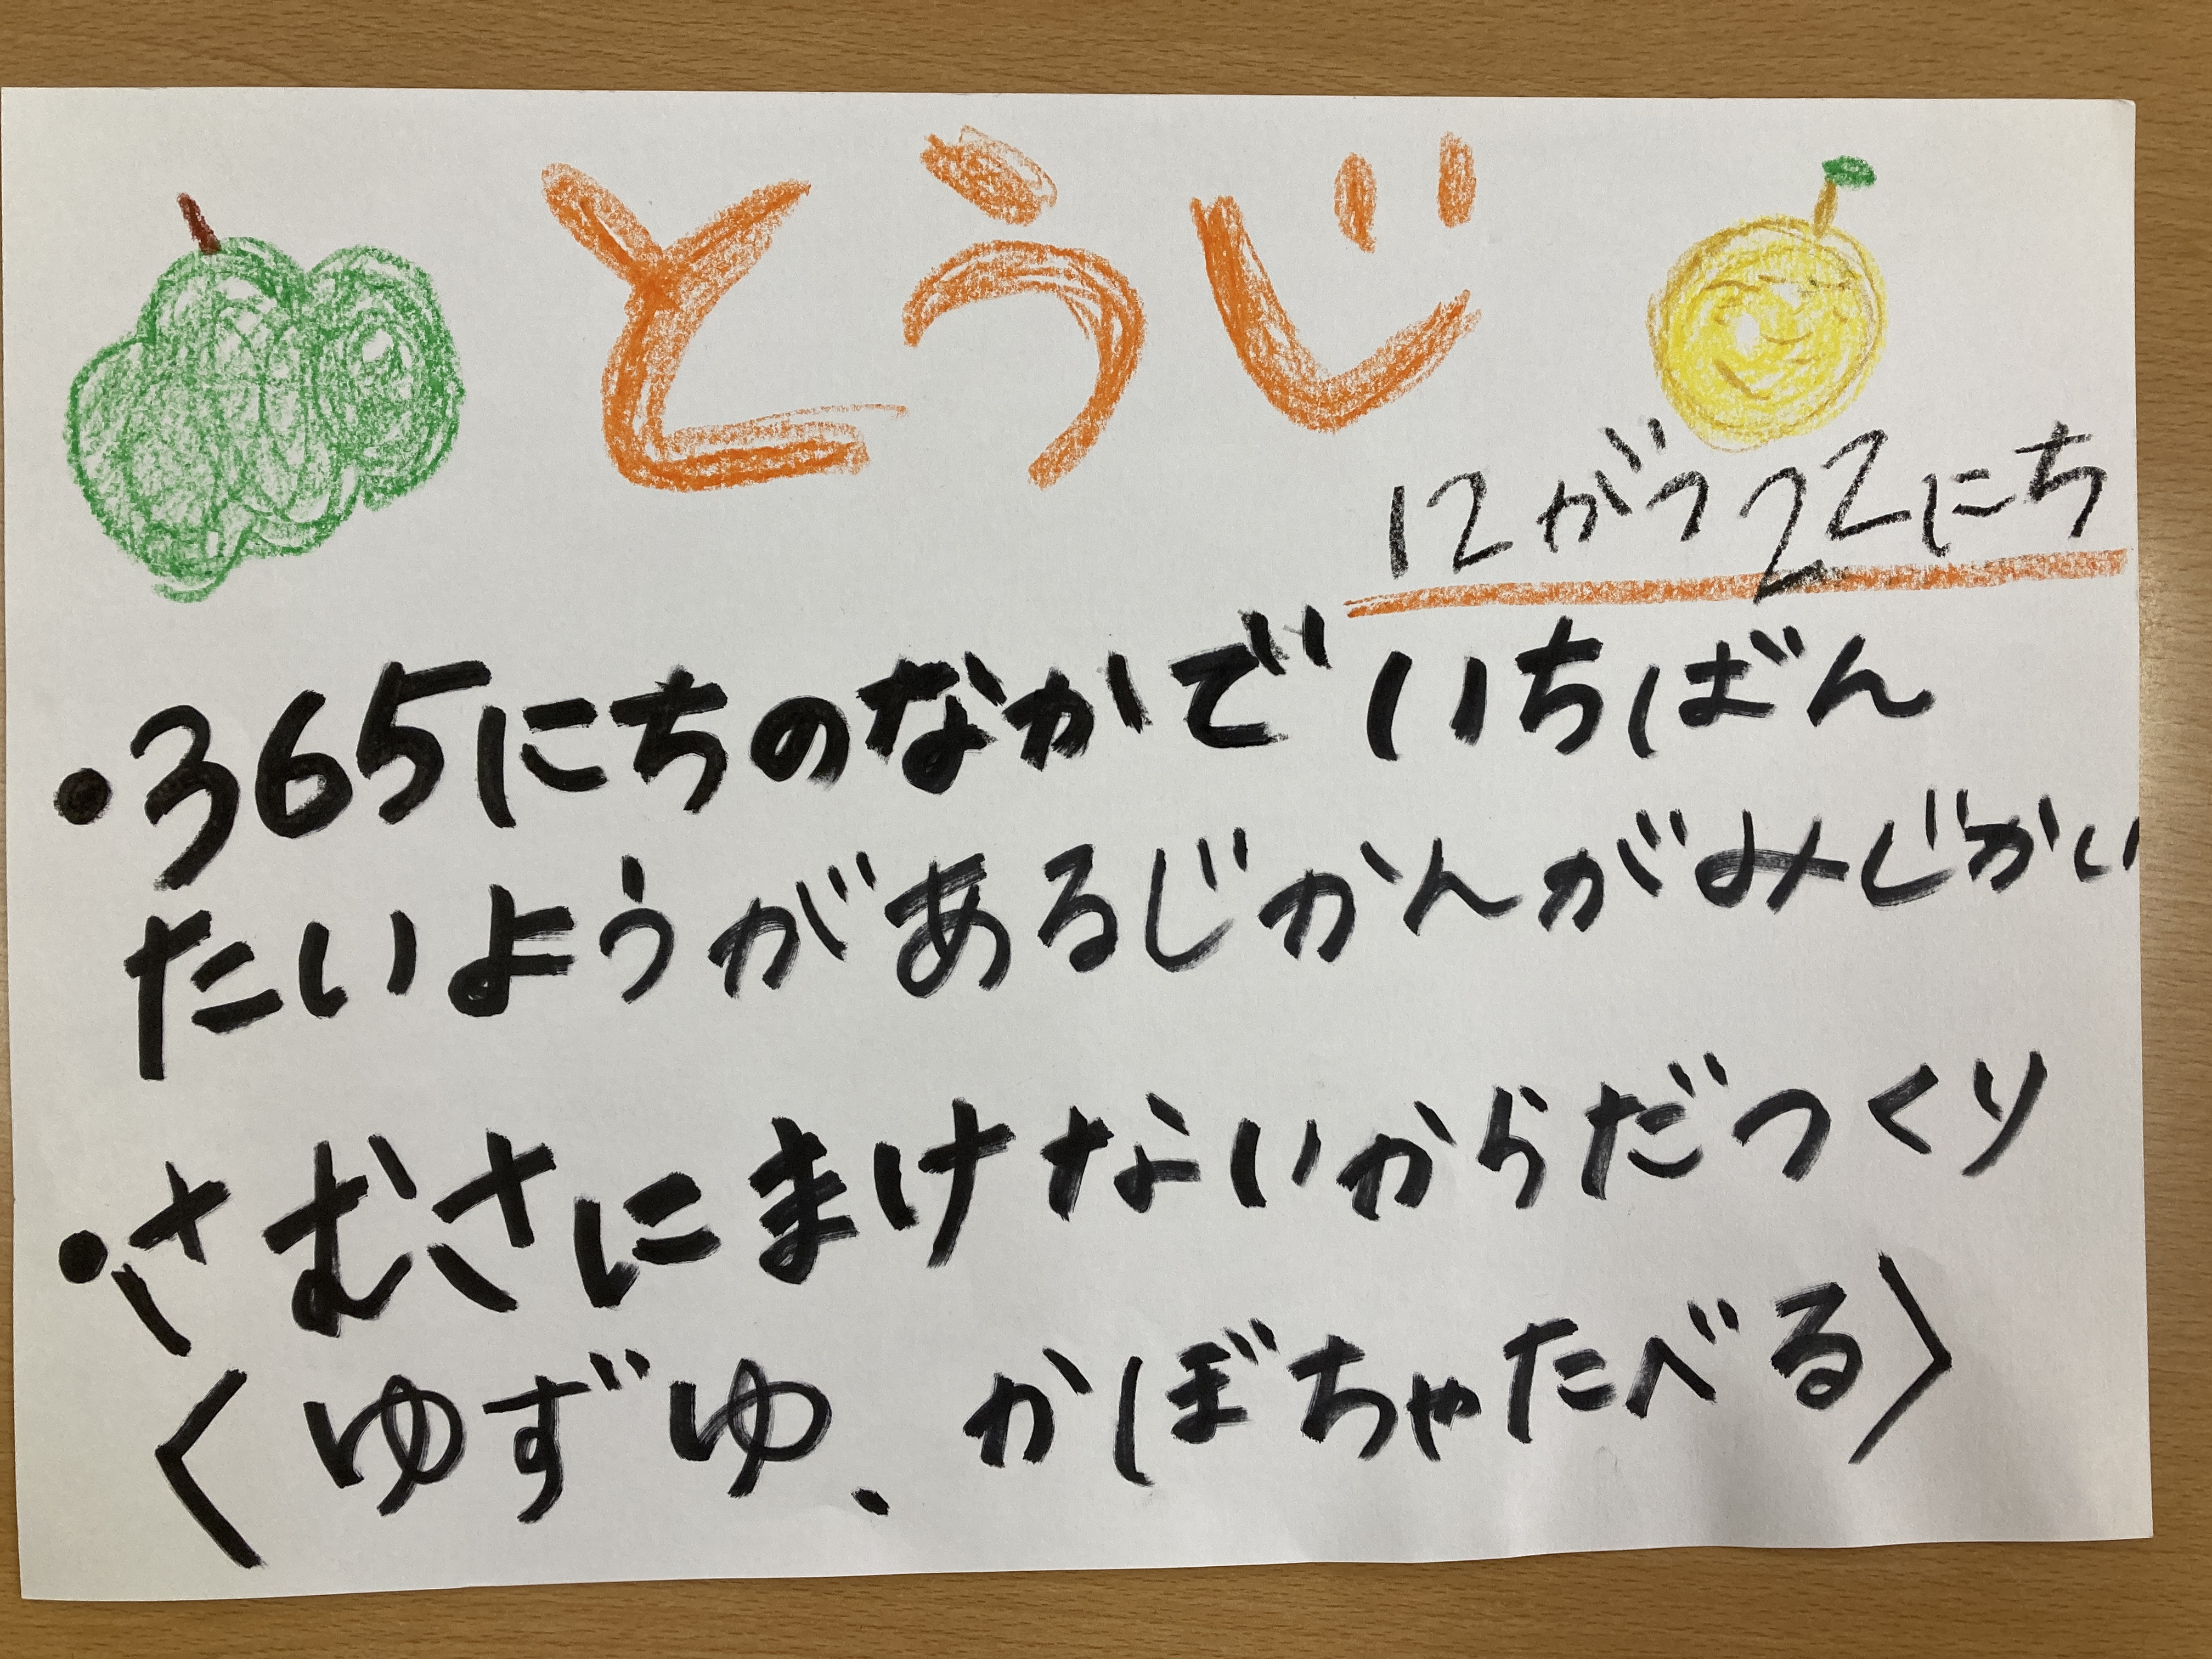 とうじ
12がつ22にち
・365にちのなかでいちばん
たいようがあるじかんがみじかい
・さむさにまけないからだつくり
〈ゆずゆ、かぼちゃたべる〉